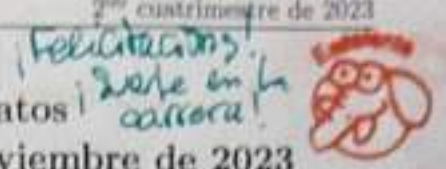 2do cuatrimestre de 2023
¡Felicitaciones!
¡Suerte en la
atos carrera!
viembre de 2023